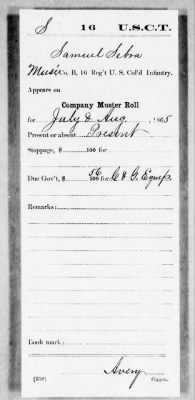 S 16 U.S.C.T.
Samuel Sebra
Musc Co. B, 16 Reg't U. S. Col'd Infantry.
Appears on
Company Muster Roll
for July & Aug, 1865
Present or absent Present
Stoppage, $ 100 for
Due Gov't, $ 56/100 for C & G. Equip.
Remarks:
Book mark:
Avery
(358) Copyist.